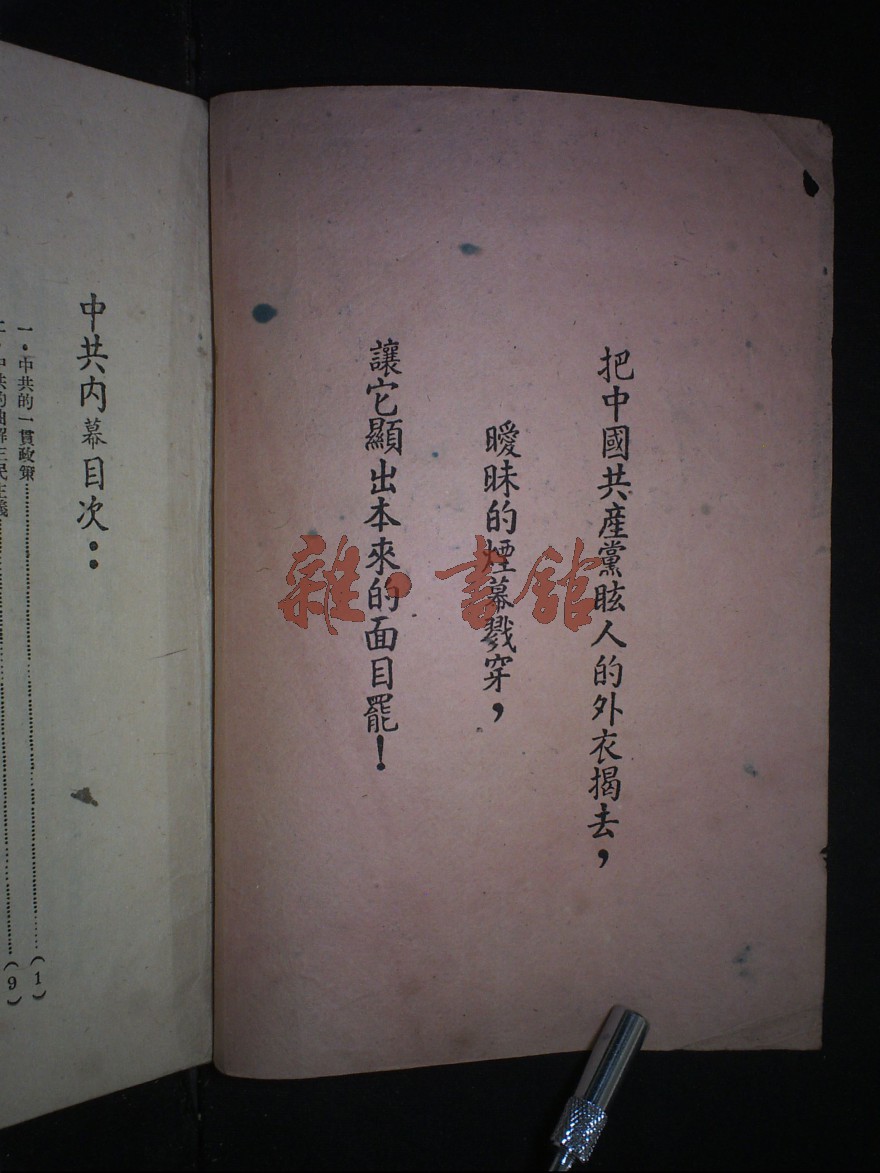 把中國共產黨眩人的外衣揭去，
曖昧的煙幕戮穿，
讓它顯出本來的面目罷！
中共內幕目次：
一．中共的一貫政策……（1）
二．中共的曲解三民主義……（9）
雜·書館